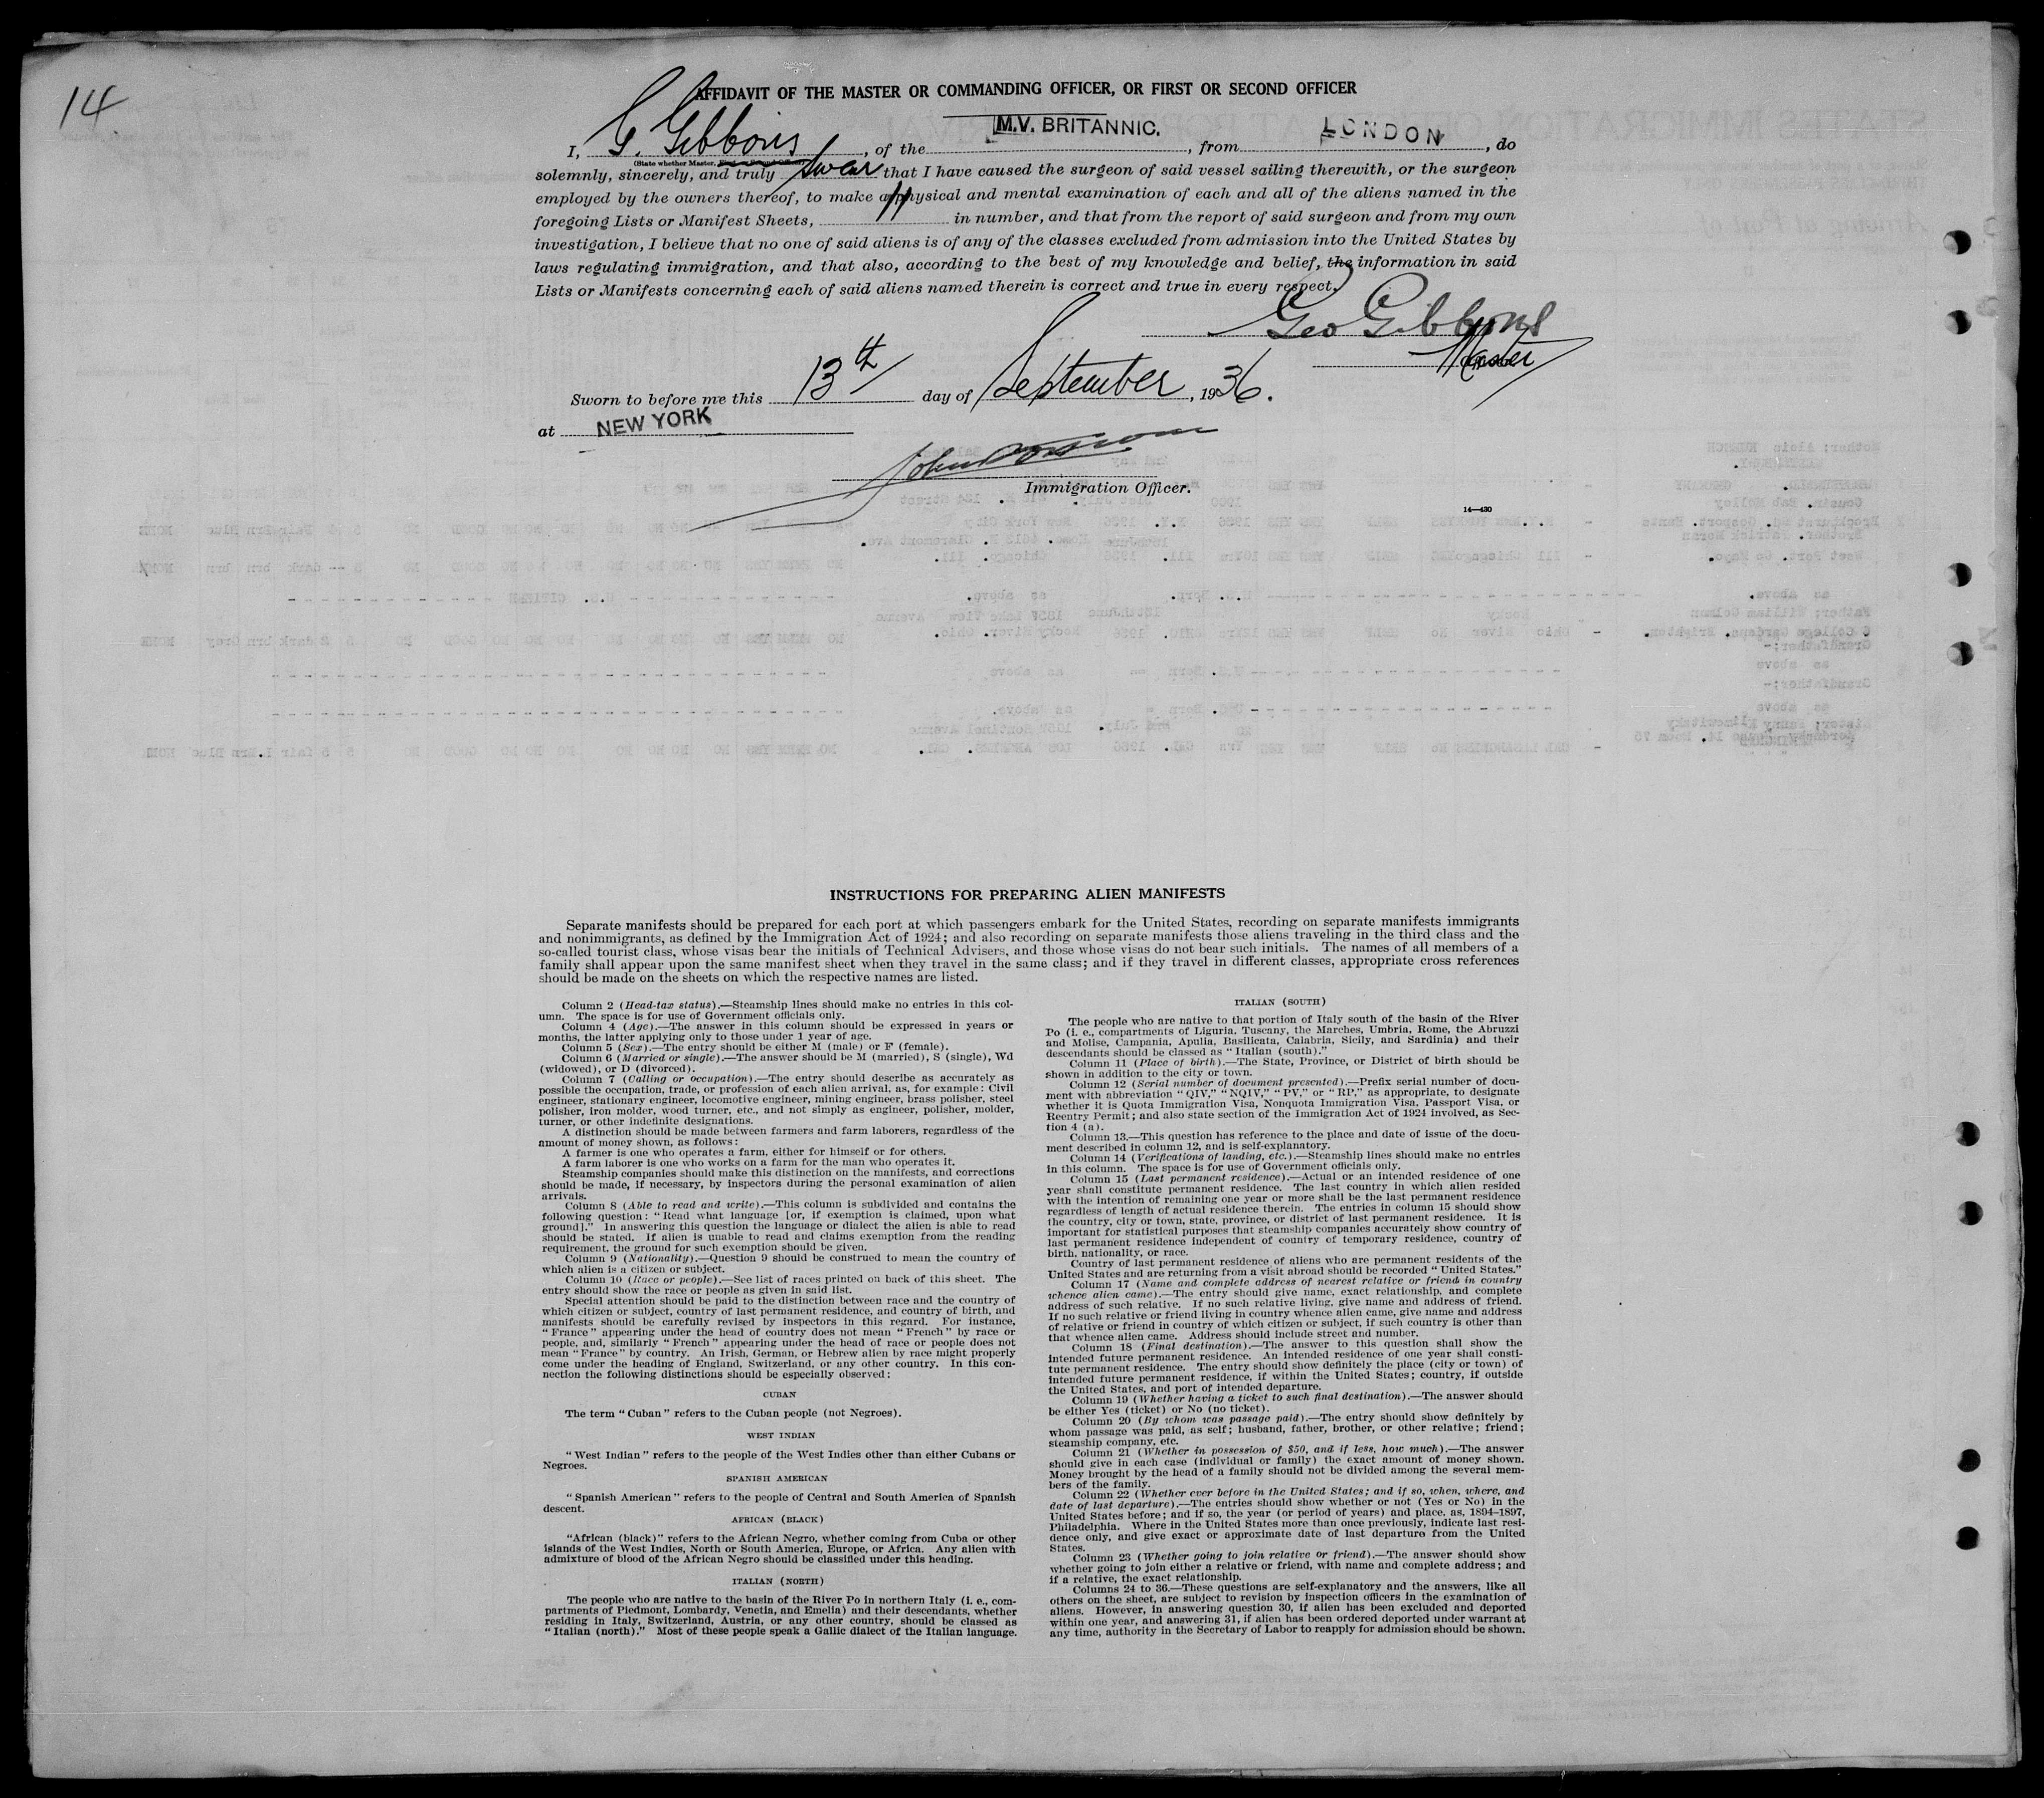 14
AFFIDAVIT OF THE MASTER OR COMMANDING OFFICER, OR FIRST OR SECOND OFFICER
I, G. Gibbons, of the M.V. BRITANNIC., from LONDON, do
(State whether Master, First or Second Officer)
solemnly, sincerely, and truly swear that I have caused the surgeon of said vessel sailing therewith, or the surgeon
employed by the owners thereof, to make a physical and mental examination of each and all of the aliens named in the
foregoing Lists or Manifest Sheets, 11 in number, and that from the report of said surgeon and from my own
investigation, I believe that no one of said aliens is of any of the classes excluded from admission into the United States by
laws regulating immigration, and that also, according to the best of my knowledge and belief, the information in said
Lists or Manifests concerning each of said aliens named therein is correct and true in every respect.
Geo Gibbons
Master
Sworn to before me this 13th day of September, 1936.
at NEW YORK
John
Immigration Officer.
14—430
INSTRUCTIONS FOR PREPARING ALIEN MANIFESTS
Separate manifests should be prepared for each port at which passengers embark for the United States, recording on separate manifests immigrants
and nonimmigrants, as defined by the Immigration Act of 1924; and also recording on separate manifests those aliens traveling in the third class and the
so-called tourist class, whose visas bear the initials of Technical Advisers, and those whose visas do not bear such initials. The names of all members of a
family shall appear upon the same manifest sheet when they travel in the same class; and if they travel in different classes, appropriate cross references
should be made on the sheets on which the respective names are listed.
Column 2 (Head-tax status).—Steamship lines should make no entries in this col-
umn. The space is for use of Government officials only.
Column 4 (Age).—The answer in this column should be expressed in years or
months, the latter applying only to those under 1 year of age.
Column 5 (Sex).—The entry should be either M (male) or F (female).
Column 6 (Married or single).—The answer should be M (married), S (single), Wd
(widowed), or D (divorced).
Column 7 (Calling or occupation).—The entry should describe as accurately as
possible the occupation, trade, or profession of each alien arrival, as, for example: Civil
engineer, stationary engineer, locomotive engineer, mining engineer, brass polisher, steel
polisher, iron molder, wood turner, etc., and not simply as engineer, polisher, molder,
turner, or other indefinite designations.
A distinction should be made between farmers and farm laborers, regardless of the
amount of money shown, as follows:
A farmer is one who operates a farm, either for himself or for others.
A farm laborer is one who works on a farm for the man who operates it.
Steamship companies should make this distinction on the manifests, and corrections
should be made, if necessary, by inspectors during the personal examination of alien
arrivals.
Column 8 (Able to read and write).—This column is subdivided and contains the
following question: "Read what language [or, if exemption is claimed, upon what
ground]." In answering this question the language or dialect the alien is able to read
should be stated. If alien is unable to read and claims exemption from the reading
requirement, the ground for such exemption should be given.
Column 9 (Nationality).—Question 9 should be construed to mean the country of
which alien is a citizen or subject.
Column 10 (Race or people).—See list of races printed on back of this sheet. The
entry should show the race or people as given in said list.
Special attention should be paid to the distinction between race and the country of
which citizen or subject, country of last permanent residence, and country of birth, and
manifests should be carefully revised by inspectors in this regard. For instance,
"France" appearing under the head of country does not mean "French" by race or
people, and, similarly "French" appearing under the head of race or people does not
mean "France" by country. An Irish, German, or Hebrew alien by race might properly
come under the heading of England, Switzerland, or any other country. In this con-
nection the following distinctions should be especially observed:
CUBAN
The term "Cuban" refers to the Cuban people (not Negroes).
WEST INDIAN
"West Indian" refers to the people of the West Indies other than either Cubans or
Negroes.
SPANISH AMERICAN
"Spanish American" refers to the people of Central and South America of Spanish
descent.
AFRICAN (BLACK)
"African (black)" refers to the African Negro, whether coming from Cuba or other
islands of the West Indies, North or South America, Europe, or Africa. Any alien with
admixture of blood of the African Negro should be classified under this heading.
ITALIAN (NORTH)
The people who are native to the basin of the River Po in northern Italy (i. e., com-
partments of Piedmont, Lombardy, Venetia, and Emelia) and their descendants, whether
residing in Italy, Switzerland, Austria, or any other country, should be classed as
"Italian (north)." Most of these people speak a Gallic dialect of the Italian language.
ITALIAN (SOUTH)
The people who are native to that portion of Italy south of the basin of the River
Po (i. e., compartments of Liguria, Tuscany, the Marches, Umbria, Rome, the Abruzzi
and Molise, Campania, Apulia, Basilicata, Calabria, Sicily, and Sardinia) and their
descendants should be classed as "Italian (south)."
Column 11 (Place of birth).—The State, Province, or District of birth should be
shown in addition to the city or town.
Column 12 (Serial number of document presented).—Prefix serial number of docu-
ment with abbreviation "QIV," "NQIV," "PV," or "RP," as appropriate, to designate
whether it is Quota Immigration Visa, Nonquota Immigration Visa, Passport Visa, or
Reentry Permit; and also state section of the Immigration Act of 1924 involved, as Sec-
tion 4 (a).
Column 13.—This question has reference to the place and date of issue of the docu-
ment described in column 12, and is self-explanatory.
Column 14 (Verifications of landing, etc.).—Steamship lines should make no entries
in this column. The space is for use of Government officials only.
Column 15 (Last permanent residence).—Actual or an intended residence of one
year shall constitute permanent residence. The last country in which alien resided
with the intention of remaining one year or more shall be the last permanent residence
regardless of length of actual residence therein. The entries in column 15 should show
the country, city or town, state, province, or district of last permanent residence. It is
important for statistical purposes that steamship companies accurately show country of
last permanent residence independent of country of temporary residence, country of
birth, nationality, or race.
Country of last permanent residence of aliens who are permanent residents of the
United States and are returning from a visit abroad should be recorded "United States."
Column 17 (Name and complete address of nearest relative or friend in country
whence alien came).—The entry should give name, exact relationship, and complete
address of such relative. If no such relative living, give name and address of friend.
If no such relative or friend living in country whence alien came, give name and address
of relative or friend in country of which citizen or subject, if such country is other than
that whence alien came. Address should include street and number.
Column 18 (Final destination).—The answer to this question shall show the
intended future permanent residence. An intended residence of one year shall consti-
tute permanent residence. The entry should show definitely the place (city or town) of
intended future permanent residence, if within the United States; country, if outside
the United States, and port of intended departure.
Column 19 (Whether having a ticket to such final destination).—The answer should
be either Yes (ticket) or No (no ticket).
Column 20 (By whom was passage paid).—The entry should show definitely by
whom passage was paid, as self; husband, father, brother, or other relative; friend;
steamship company, etc.
Column 21 (Whether in possession of $50, and if less, how much).—The answer
should give in each case (individual or family) the exact amount of money shown.
Money brought by the head of a family should not be divided among the several mem-
bers of the family.
Column 22 (Whether ever before in the United States; and if so, when, where, and
date of last departure).—The entries should show whether or not (Yes or No) in the
United States before; and if so, the year (or period of years) and place, as, 1894–1897,
Philadelphia. Where in the United States more than once previously, indicate last resi-
dence only, and give exact or approximate date of last departure from the United
States.
Column 23 (Whether going to join relative or friend).—The answer should show
whether going to join either a relative or friend, with name and complete address; and
if a relative, the exact relationship.
Columns 24 to 36.—These questions are self-explanatory and the answers, like all
others on the sheet, are subject to revision by inspection officers in the examination of
aliens. However, in answering question 30, if alien has been excluded and deported
within one year, and answering 31, if alien has been ordered deported under warrant at
any time, authority in the Secretary of Labor to reapply for admission should be shown.